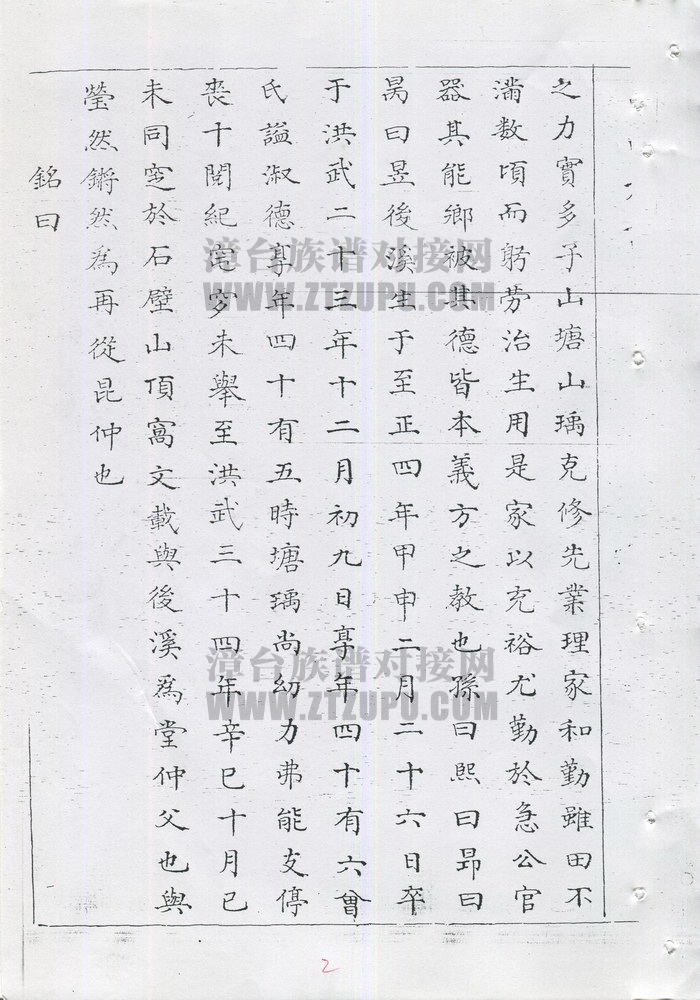 之力實多子山塘山瑀克修先業理家和勤雖田不
滿数頃而躬劳治生用是家以充裕尤勤於急公官
器其能鄉被其德皆本義方之教也孫曰熙曰昻曰
昺曰昱後溪生于至正四年甲申二月二十六日卒
于洪武二十三年十二月初九日享年四十有六曾
氏謚淑德享年四十有五時塘瑀尚幼力弗能支停
喪十閱紀窀穸未舉至洪武三十四年辛巳十月己
未同窆於石壁山頂窩文載與後溪爲堂仲父也與
瑩然鏘然爲再從昆仲也
銘曰
漳台族谱对接网
WWW.ZTZUPU.COM
漳台族谱对接网
WWW.ZTZUPU.COM
2